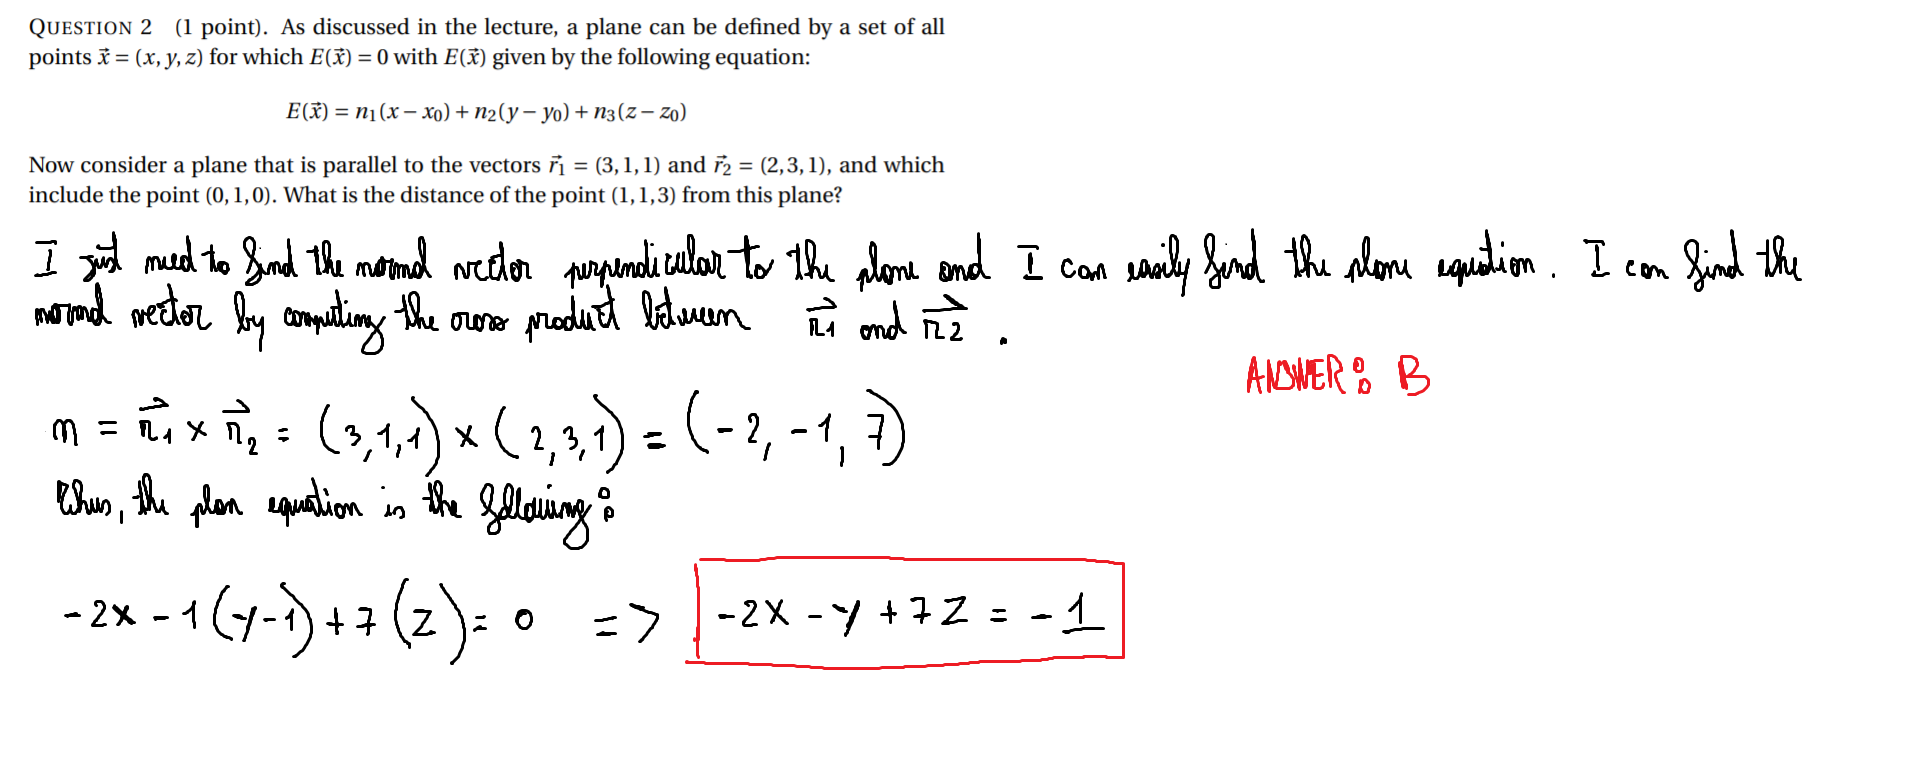 QUESTION 2 (1 point). As discussed in the lecture, a plane can be defined by a set of all
points x⃗ = (x, y, z) for which E(x⃗) = 0 with E(x⃗) given by the following equation:
E(x⃗) = n₁(x − x₀) + n₂(y − y₀) + n₃(z − z₀)
Now consider a plane that is parallel to the vectors r⃗₁ = (3,1,1) and r⃗₂ = (2,3,1), and which
include the point (0,1,0). What is the distance of the point (1,1,3) from this plane?
I just need to find the normal vector perpendicular to the plane and I can easily find the plane equation. I can find the
normal vector by computing the cross product between r⃗1 and r⃗2.
ANSWER: B
n = r⃗₁ × r⃗₂ = (3,1,1) × (2,3,1) = (-2, -1, 7)
Thus, the plan equation is the following:
-2x - 1(y-1) + 7(z) = 0 => -2x - y + 7z = -1